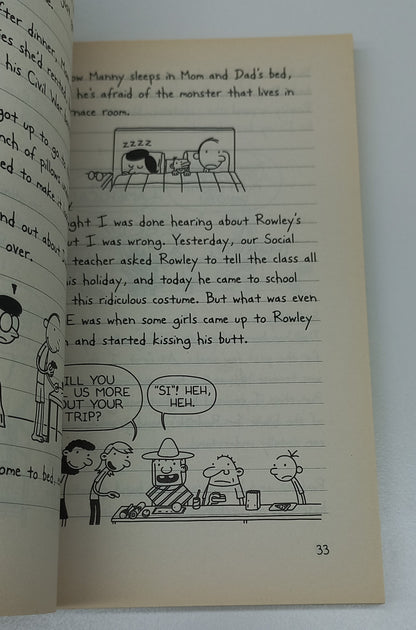 fter dinner, M
ies she'd rented
his Civil War
got up to go t
nch of pillows u
ed to make it
nd out about
over.
ome to bed
ow Manny sleeps in Mom and Dad's bed,
he's afraid of the monster that lives in
nace room.
ZZZZ
ght I was done hearing about Rowley's
ut I was wrong. Yesterday, our Social
teacher asked Rowley to tell the class all
is holiday, and today he came to school
this ridiculous costume. But what was even
E was when some girls came up to Rowley
h and started kissing his butt.
ILL YOU
L US MORE
OUT YOUR
TRIP?
"SI"! HEH,
HEH.
33